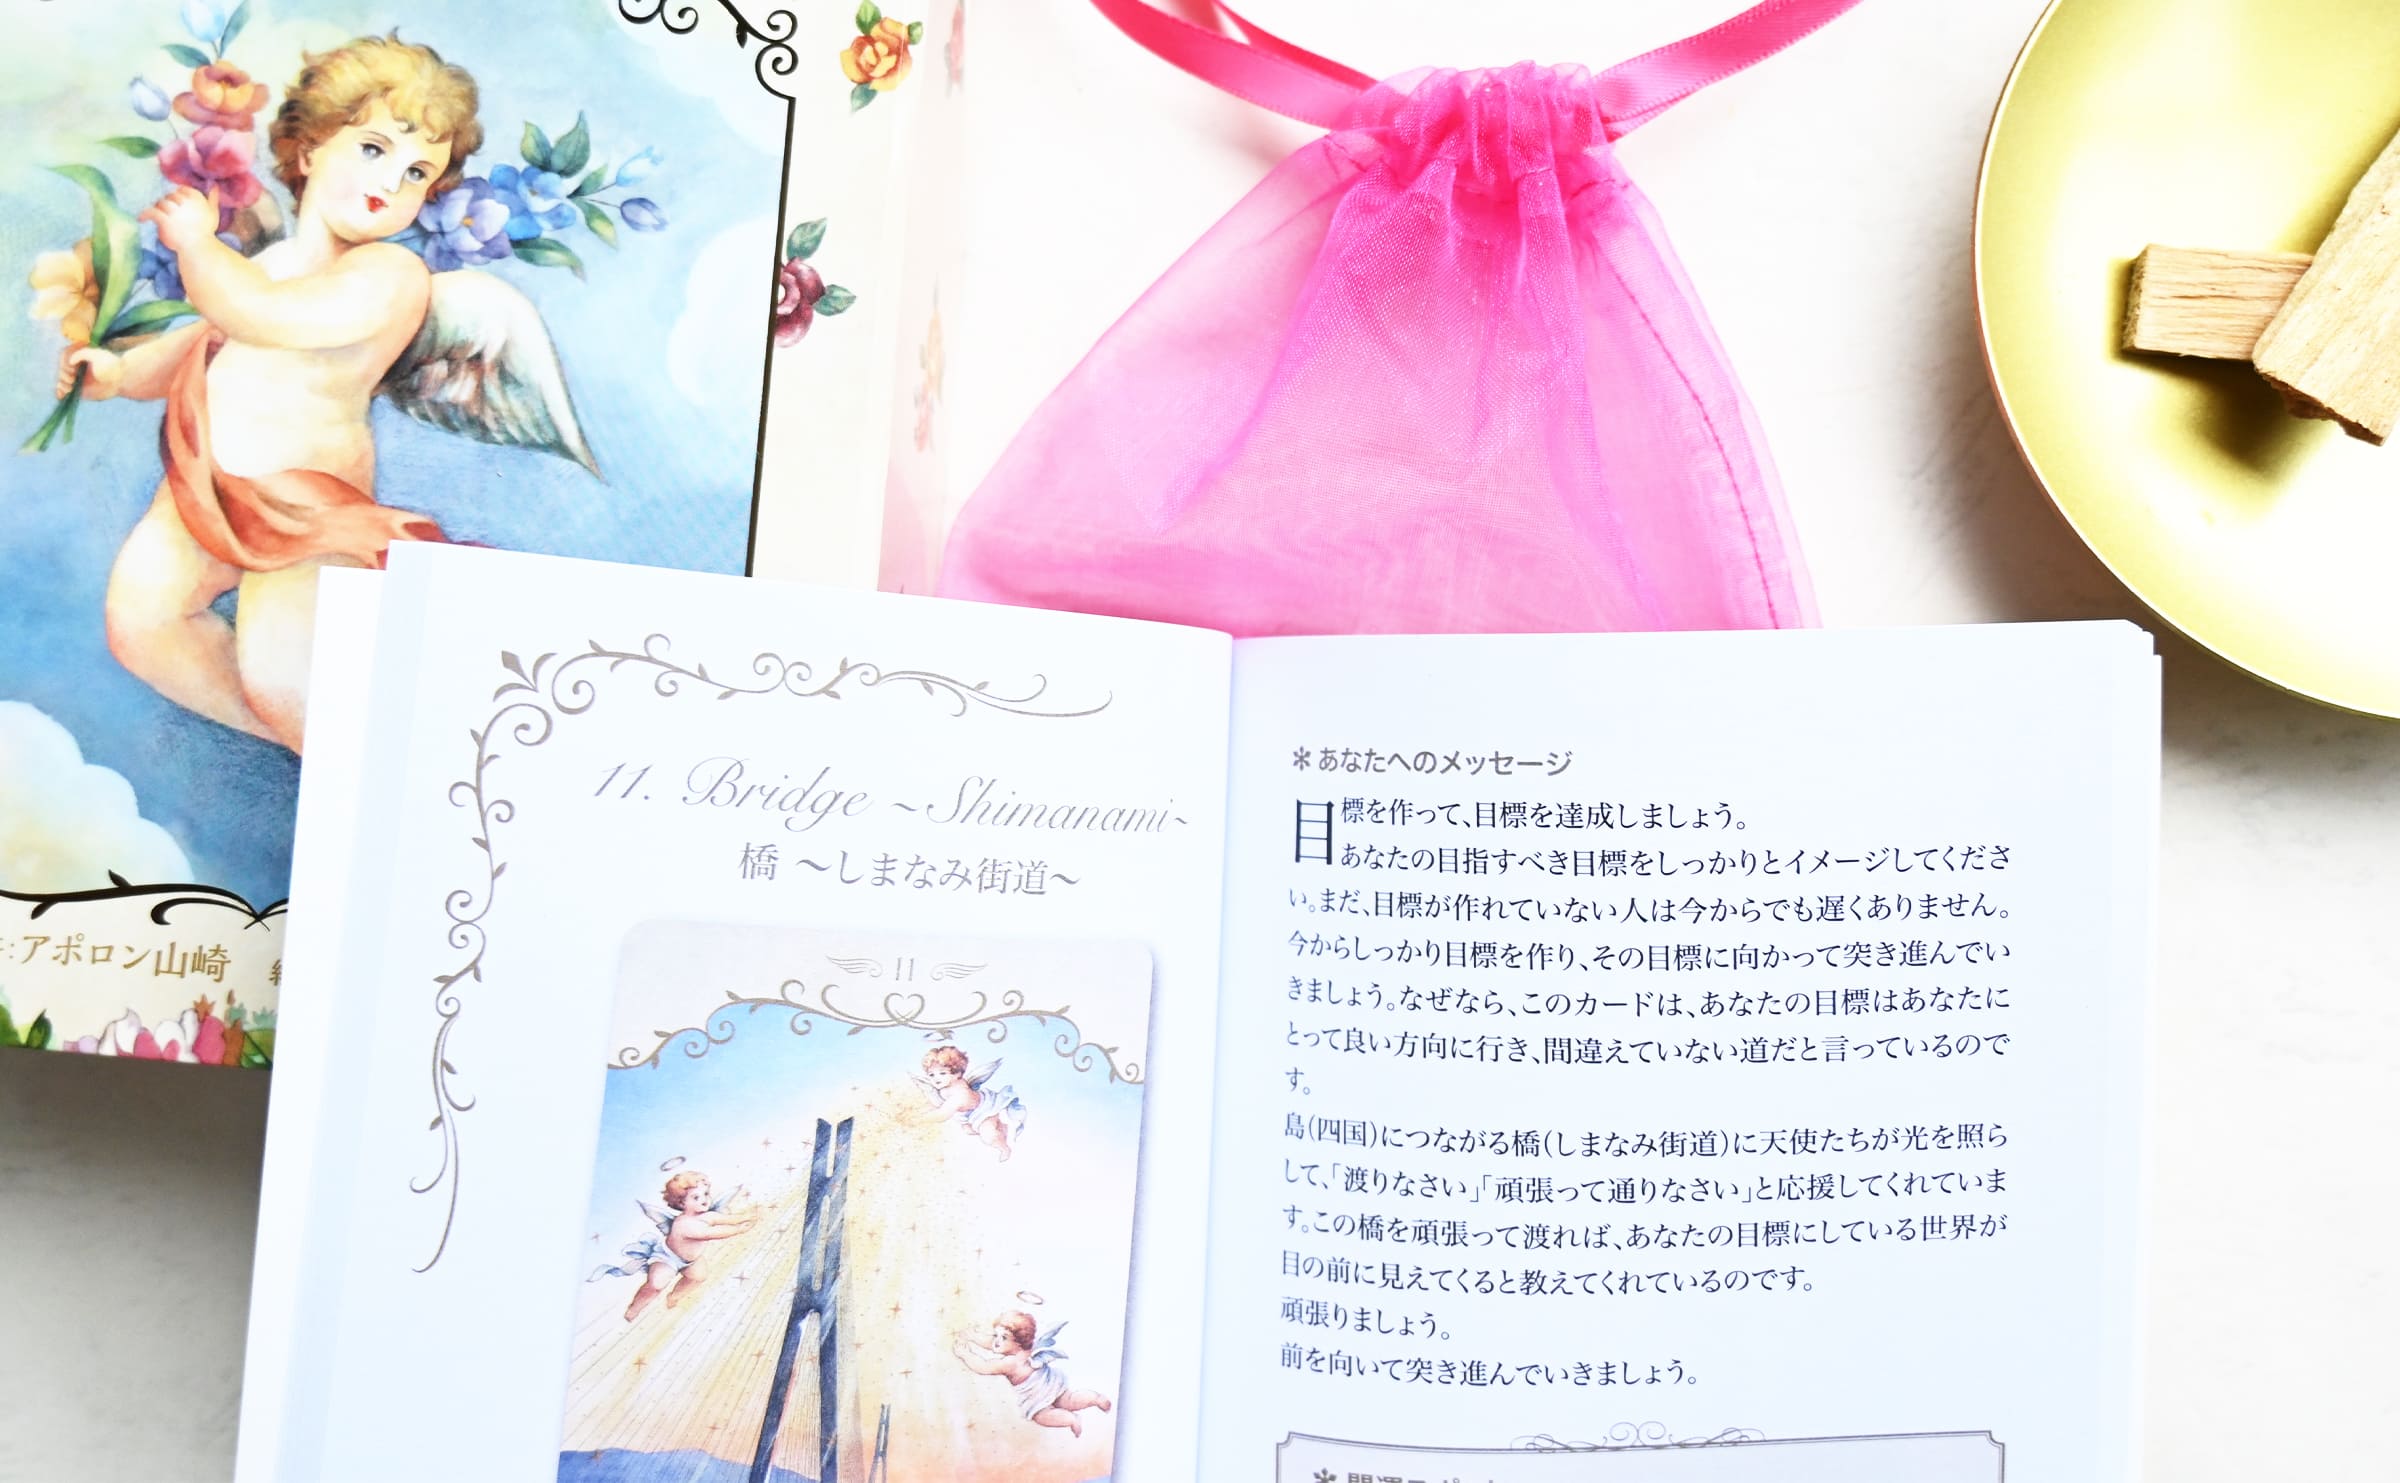 :アポロン山崎
11. Bridge ~Shimanami~
橋 ～しまなみ街道～
11
＊あなたへのメッセージ
目標を作って、目標を達成しましょう。
あなたの目指すべき目標をしっかりとイメージしてくださ
い。まだ、目標が作れていない人は今からでも遅くありません。
今からしっかり目標を作り、その目標に向かって突き進んでい
きましょう。なぜなら、このカードは、あなたの目標はあなたに
とって良い方向に行き、間違えていない道だと言っているので
す。
島(四国)につながる橋(しまなみ街道)に天使たちが光を照ら
して、「渡りなさい」「頑張って通りなさい」と応援してくれていま
す。この橋を頑張って渡れば、あなたの目標にしている世界が
目の前に見えてくると教えてくれているのです。
頑張りましょう。
前を向いて突き進んでいきましょう。